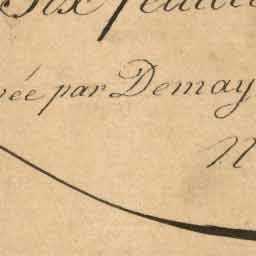 Six feuille
vée par Demay
N